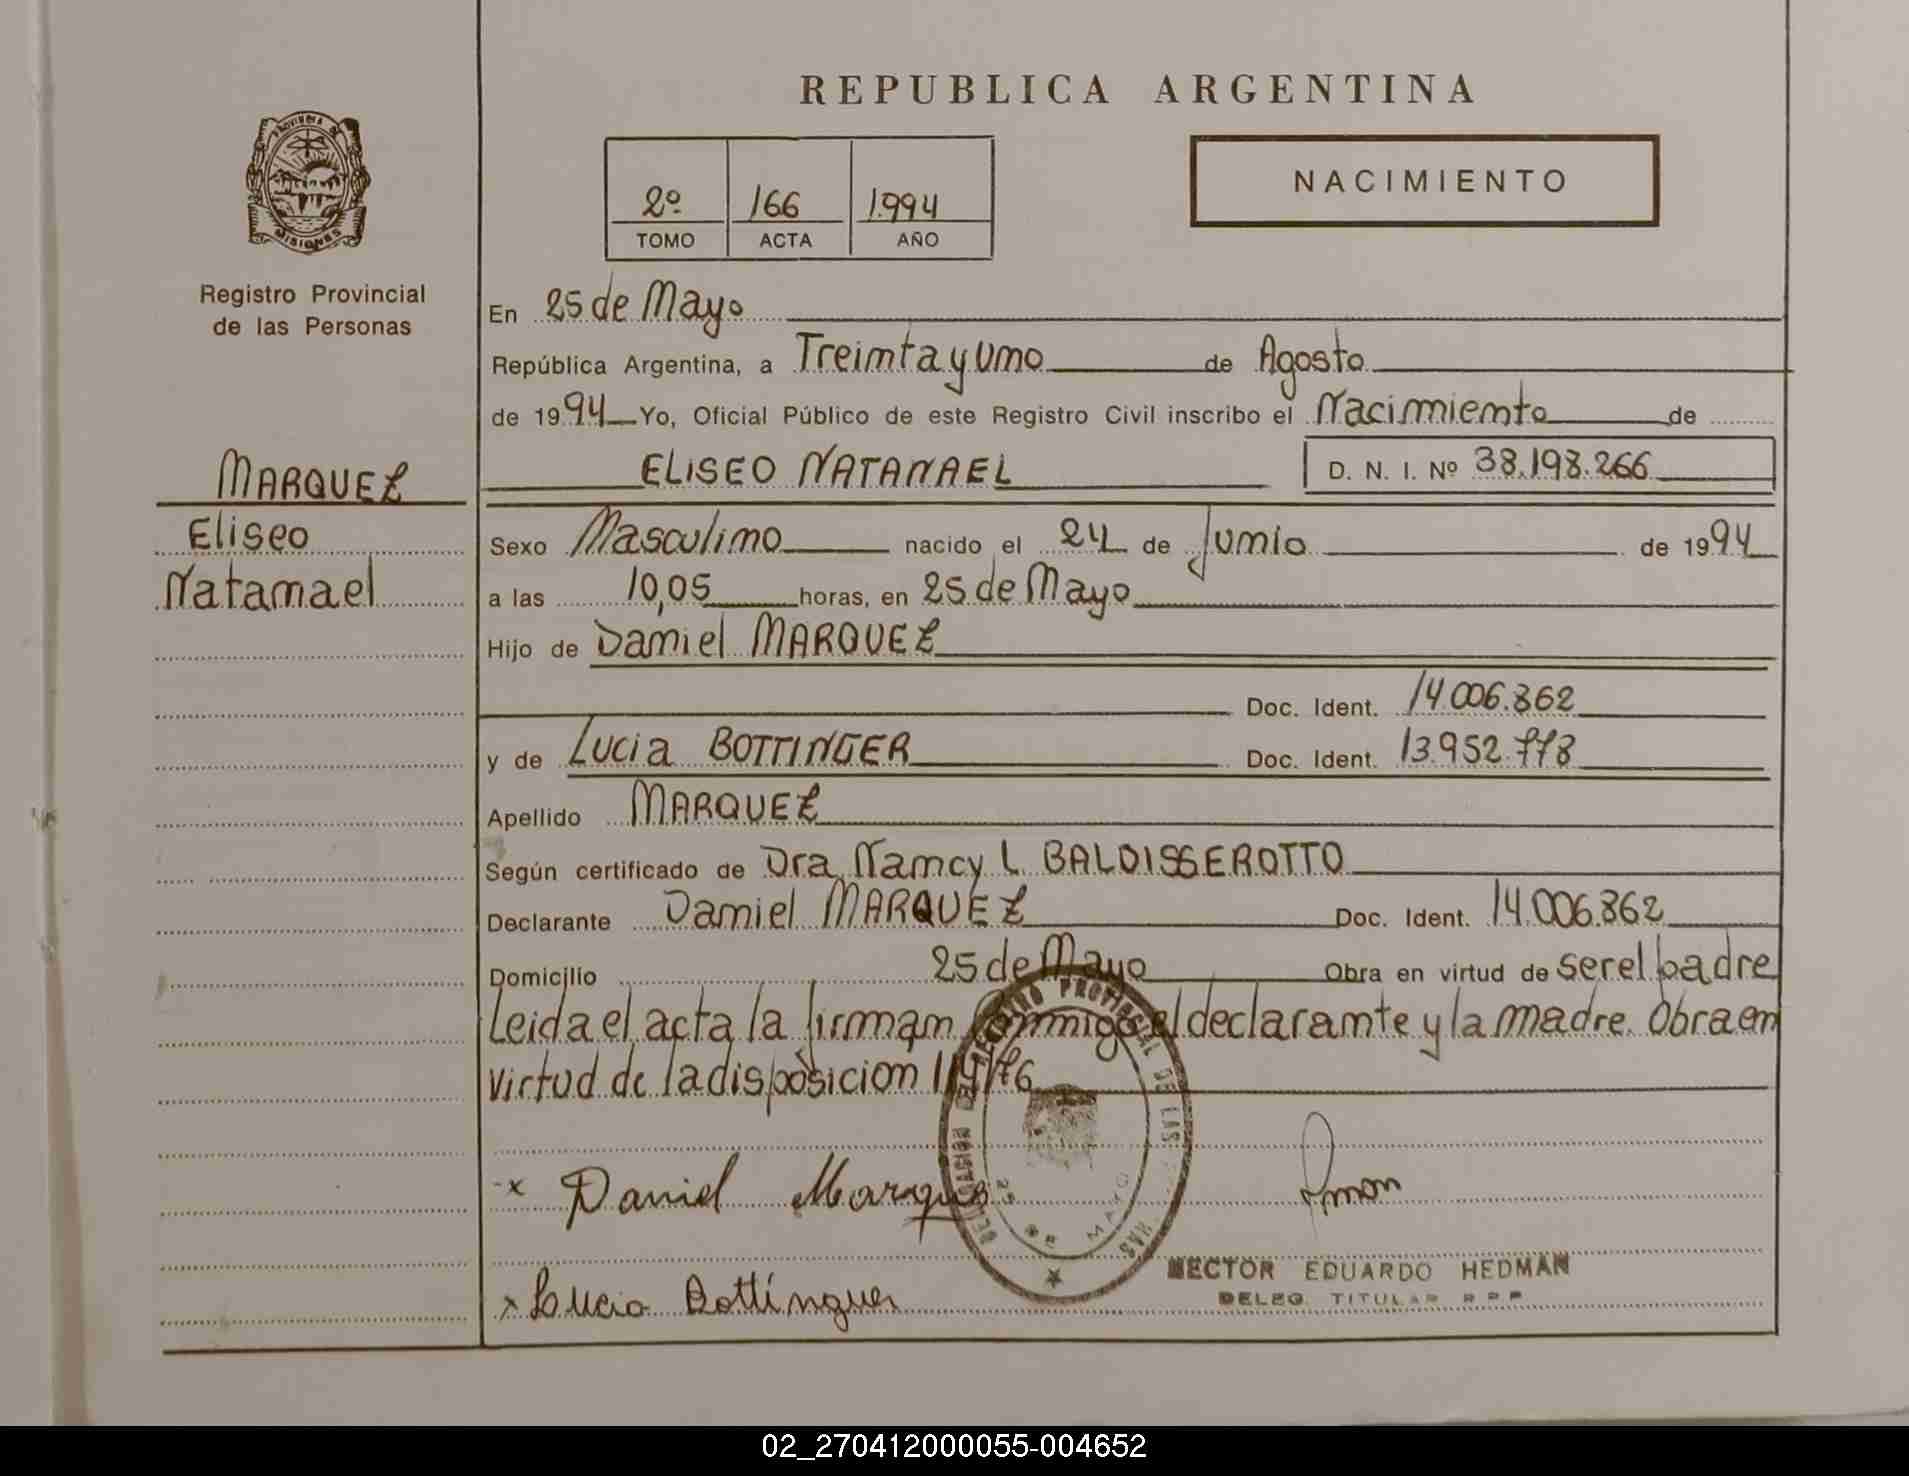 REPUBLICA ARGENTINA
PROVINCIA DE
MISIONES
2º 166 1.994
TOMO ACTA AÑO
NACIMIENTO
Registro Provincial
de las Personas
En 25 de Mayo
República Argentina, a Treinta y uno de Agosto
de 1994 Yo, Oficial Público de este Registro Civil inscribo el Nacimiento de
MARQUEZ
Eliseo
Natanael
ELISEO NATANAEL D. N. I. Nº 38.198.266
Sexo Masculino nacido el 24 de Junio de 1994
a las 10,05 horas, en 25 de Mayo
Hijo de Daniel MARQUEZ
Doc. Ident. 14.006.862
y de Lucia BOTTINGER Doc. Ident. 13.952.778
Apellido MARQUEZ
Según certificado de Dra. Nancy L. BALDISSEROTTO
Declarante Daniel MARQUEZ Doc. Ident. 14.006.862
Domicilio 25 de Mayo Obra en virtud de ser el padre
Leida el acta la firman Conmigo el declarante y la madre. Obra en
virtud de la disposicion
DELEGACION DEL REGISTRO PROVINCIAL DE LAS
25 DE MAYO
x Daniel Marques
HECTOR EDUARDO HEDMAN
DELEG. TITULAR R.P.P.
x Lucia Bottinguer
02_270412000055-004652